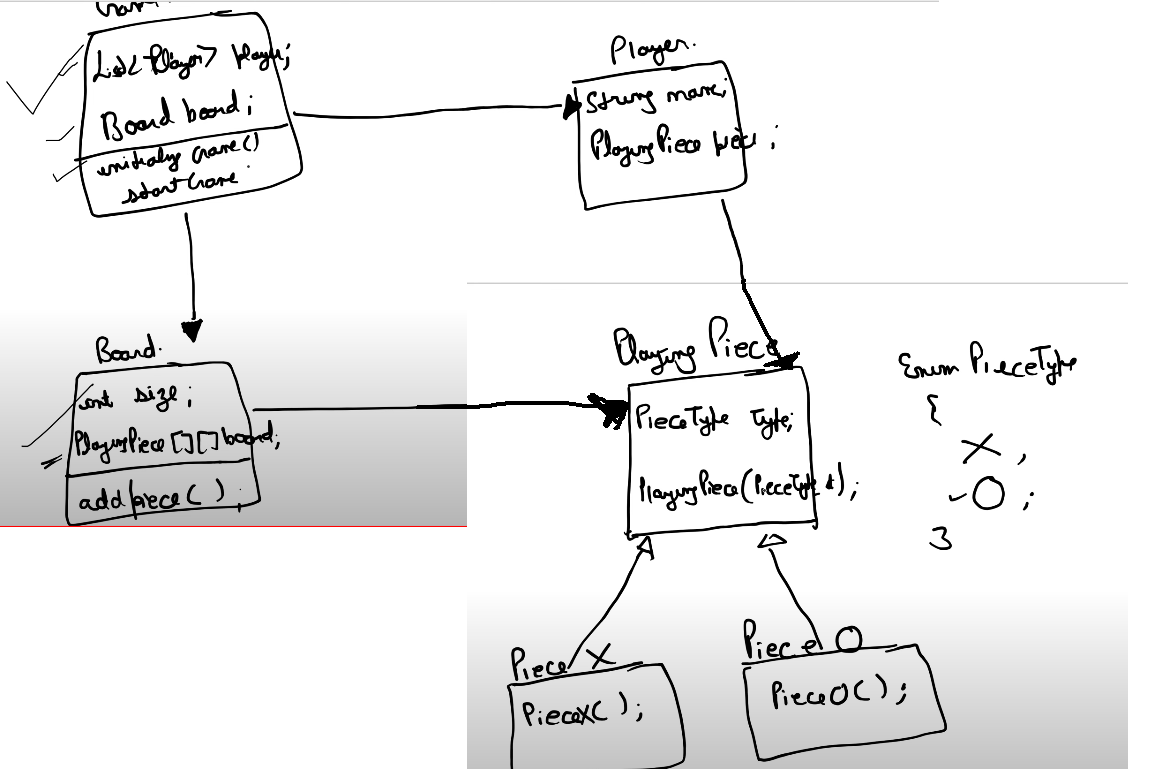 List<Player> player;
Board board;
initialize Game()
start Game
Player.
String name;
PlayingPiece piece;
Board.
int size;
PlayingPiece [][] board;
add piece( );
Playing Piece
PieceType Type;
PlayingPiece(PieceType t);
Enum PieceType
{
X,
O;
}
Piece X
PieceX( );
Piece O
PieceO( );